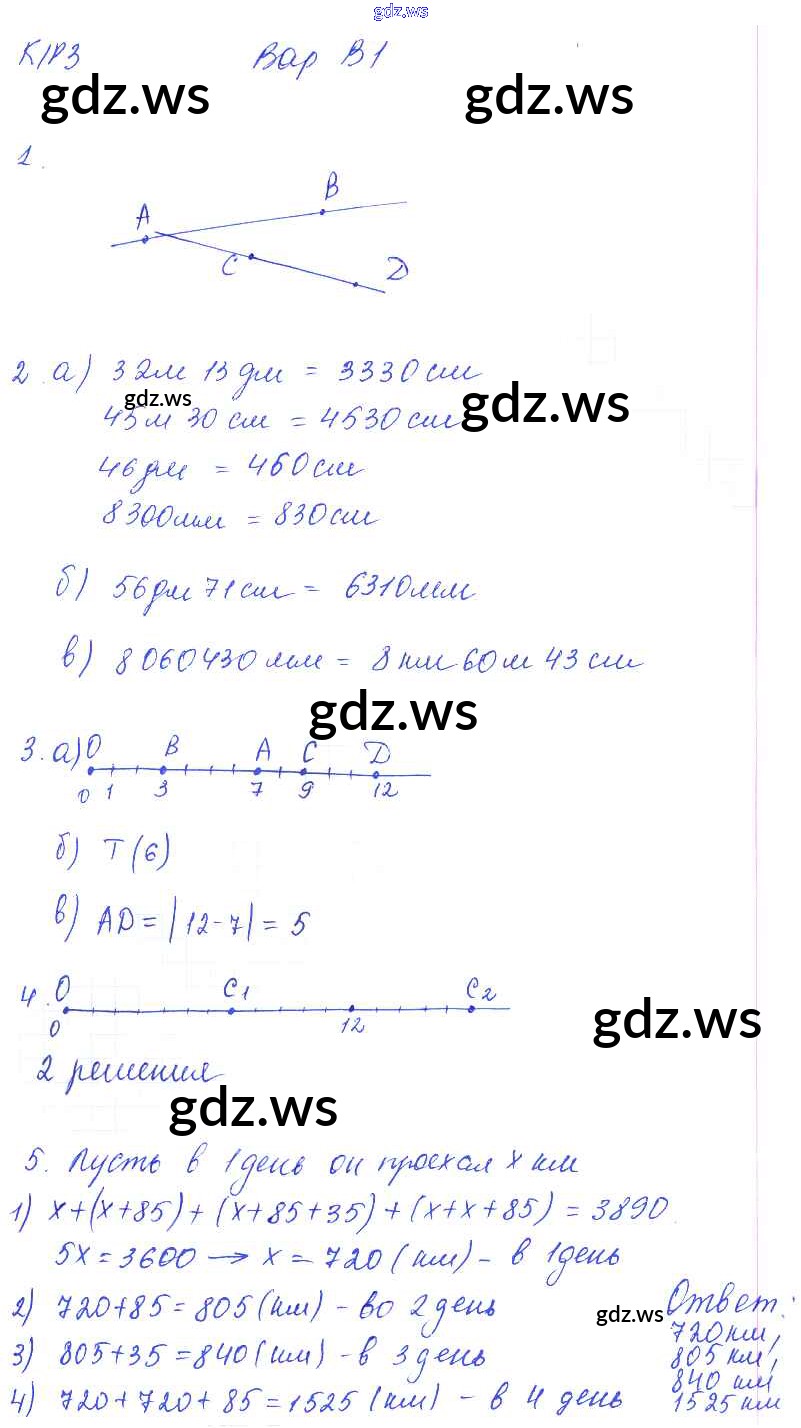 gdz.ws
К/Р3 Вар В1
gdz.ws gdz.ws
1.
A B
C D
2 а) 32м 13 дм = 3330 см
gdz.ws gdz.ws
45м 30 см = 4530 см
46 дм = 460 см
8300 мм = 830 см
б) 56 дм 71 см = 6310 мм
в) 8060430 мм = 8 км 60 м 43 см
gdz.ws
3. а) O B A C D
0 1 3 7 9 12
б) T(6)
в) AD = |12-7| = 5
4. O C1 C2
0 12
gdz.ws
2 решения
gdz.ws
5. Пусть в 1 день он проехал x км
1) x+(x+85)+(x+85+35)+(x+x+85) = 3890
5x = 3600 → x = 720 (км) - в 1 день
2) 720+85 = 805 (км) - во 2 день
3) 805+35 = 840 (км) - в 3 день
4) 720+720+85 = 1525 (км) - в 4 день
gdz.ws
Ответ:
720 км,
805 км,
840 км
1525 км